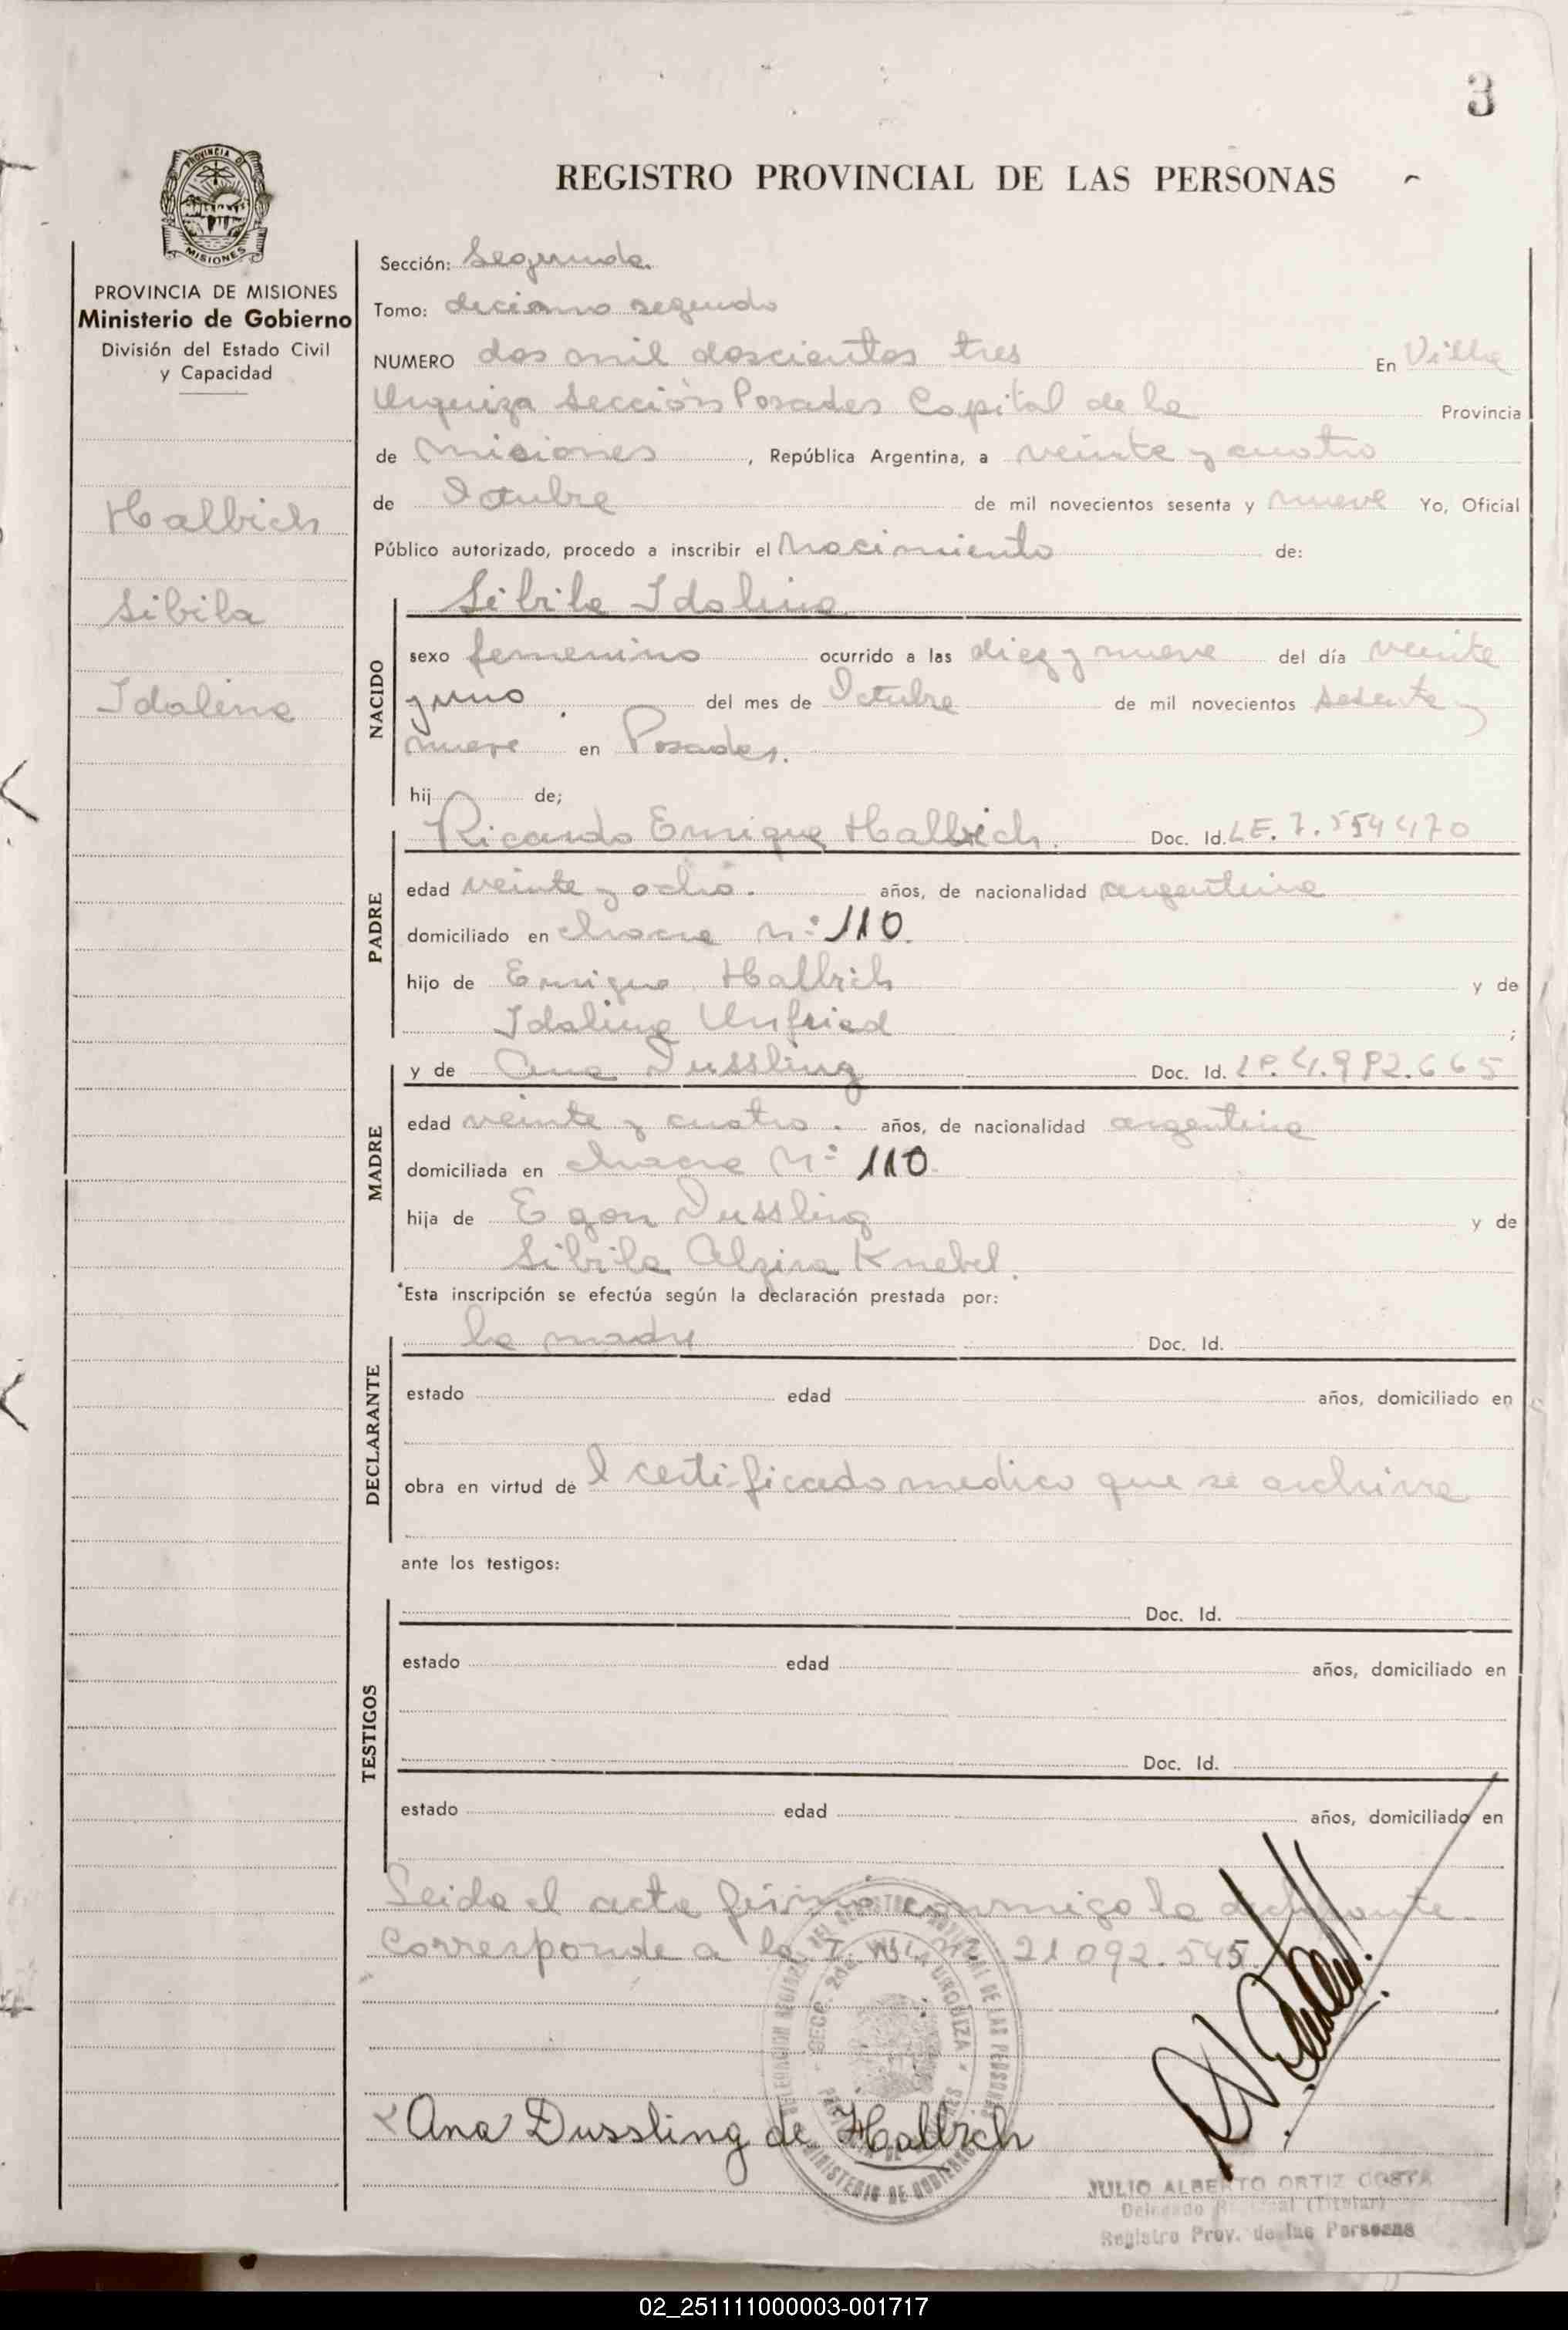 3
REGISTRO PROVINCIAL DE LAS PERSONAS
PROVINCIA DE MISIONES
PROVINCIA DE MISIONES
Ministerio de Gobierno
División del Estado Civil
y Capacidad
Halbich
Sibila
Idalina
Sección: Segunda.
Tomo: decimo segundo
NUMERO dos mil doscientos tres En Villa
Urquiza Sección Posadas Capital de la Provincia
de Misiones, República Argentina, a veinte y cuatro
de Octubre de mil novecientos sesenta y nueve Yo, Oficial
Público autorizado, procedo a inscribir el Nacimiento de:
NACIDO
Sibila Idalina
sexo femenino ocurrido a las diez y nueve del día veinte
y uno del mes de Octubre de mil novecientos sesenta y
nueve en Posadas.
hij de;
PADRE
Ricardo Enrique Halbich. Doc. Id. LE. 7.554470
edad veinte y ocho. años, de nacionalidad argentina
domiciliado en chacra Nº 110.
hijo de Enrique Halbich y de
Idalina Unfried ;
MADRE
y de Ana Dussling Doc. Id. LC. 4.982.665
edad veinte y cuatro. años, de nacionalidad argentina
domiciliada en chacra Nº 110.
hija de Egon Dussling y de
Sibila Alzira Knebel.
Esta inscripción se efectúa según la declaración prestada por:
DECLARANTE
la madre Doc. Id.
estado edad años, domiciliado en
obra en virtud de l certificado medico que se archiva
ante los testigos:
TESTIGOS
Doc. Id.
estado edad años, domiciliado en
Doc. Id.
estado edad años, domiciliado en
Leida el acta firma conmigo la declarante.
Corresponde a la 21092.545.
SECC. 2da. VILLA URQUIZA
MINISTERIO DE GOBIERNO
Ana Dussling de Halbich
JULIO ALBERTO ORTIZ COSTA
Delegado (Titular)
Registro Prov. de las Personas
02_251111000003-001717